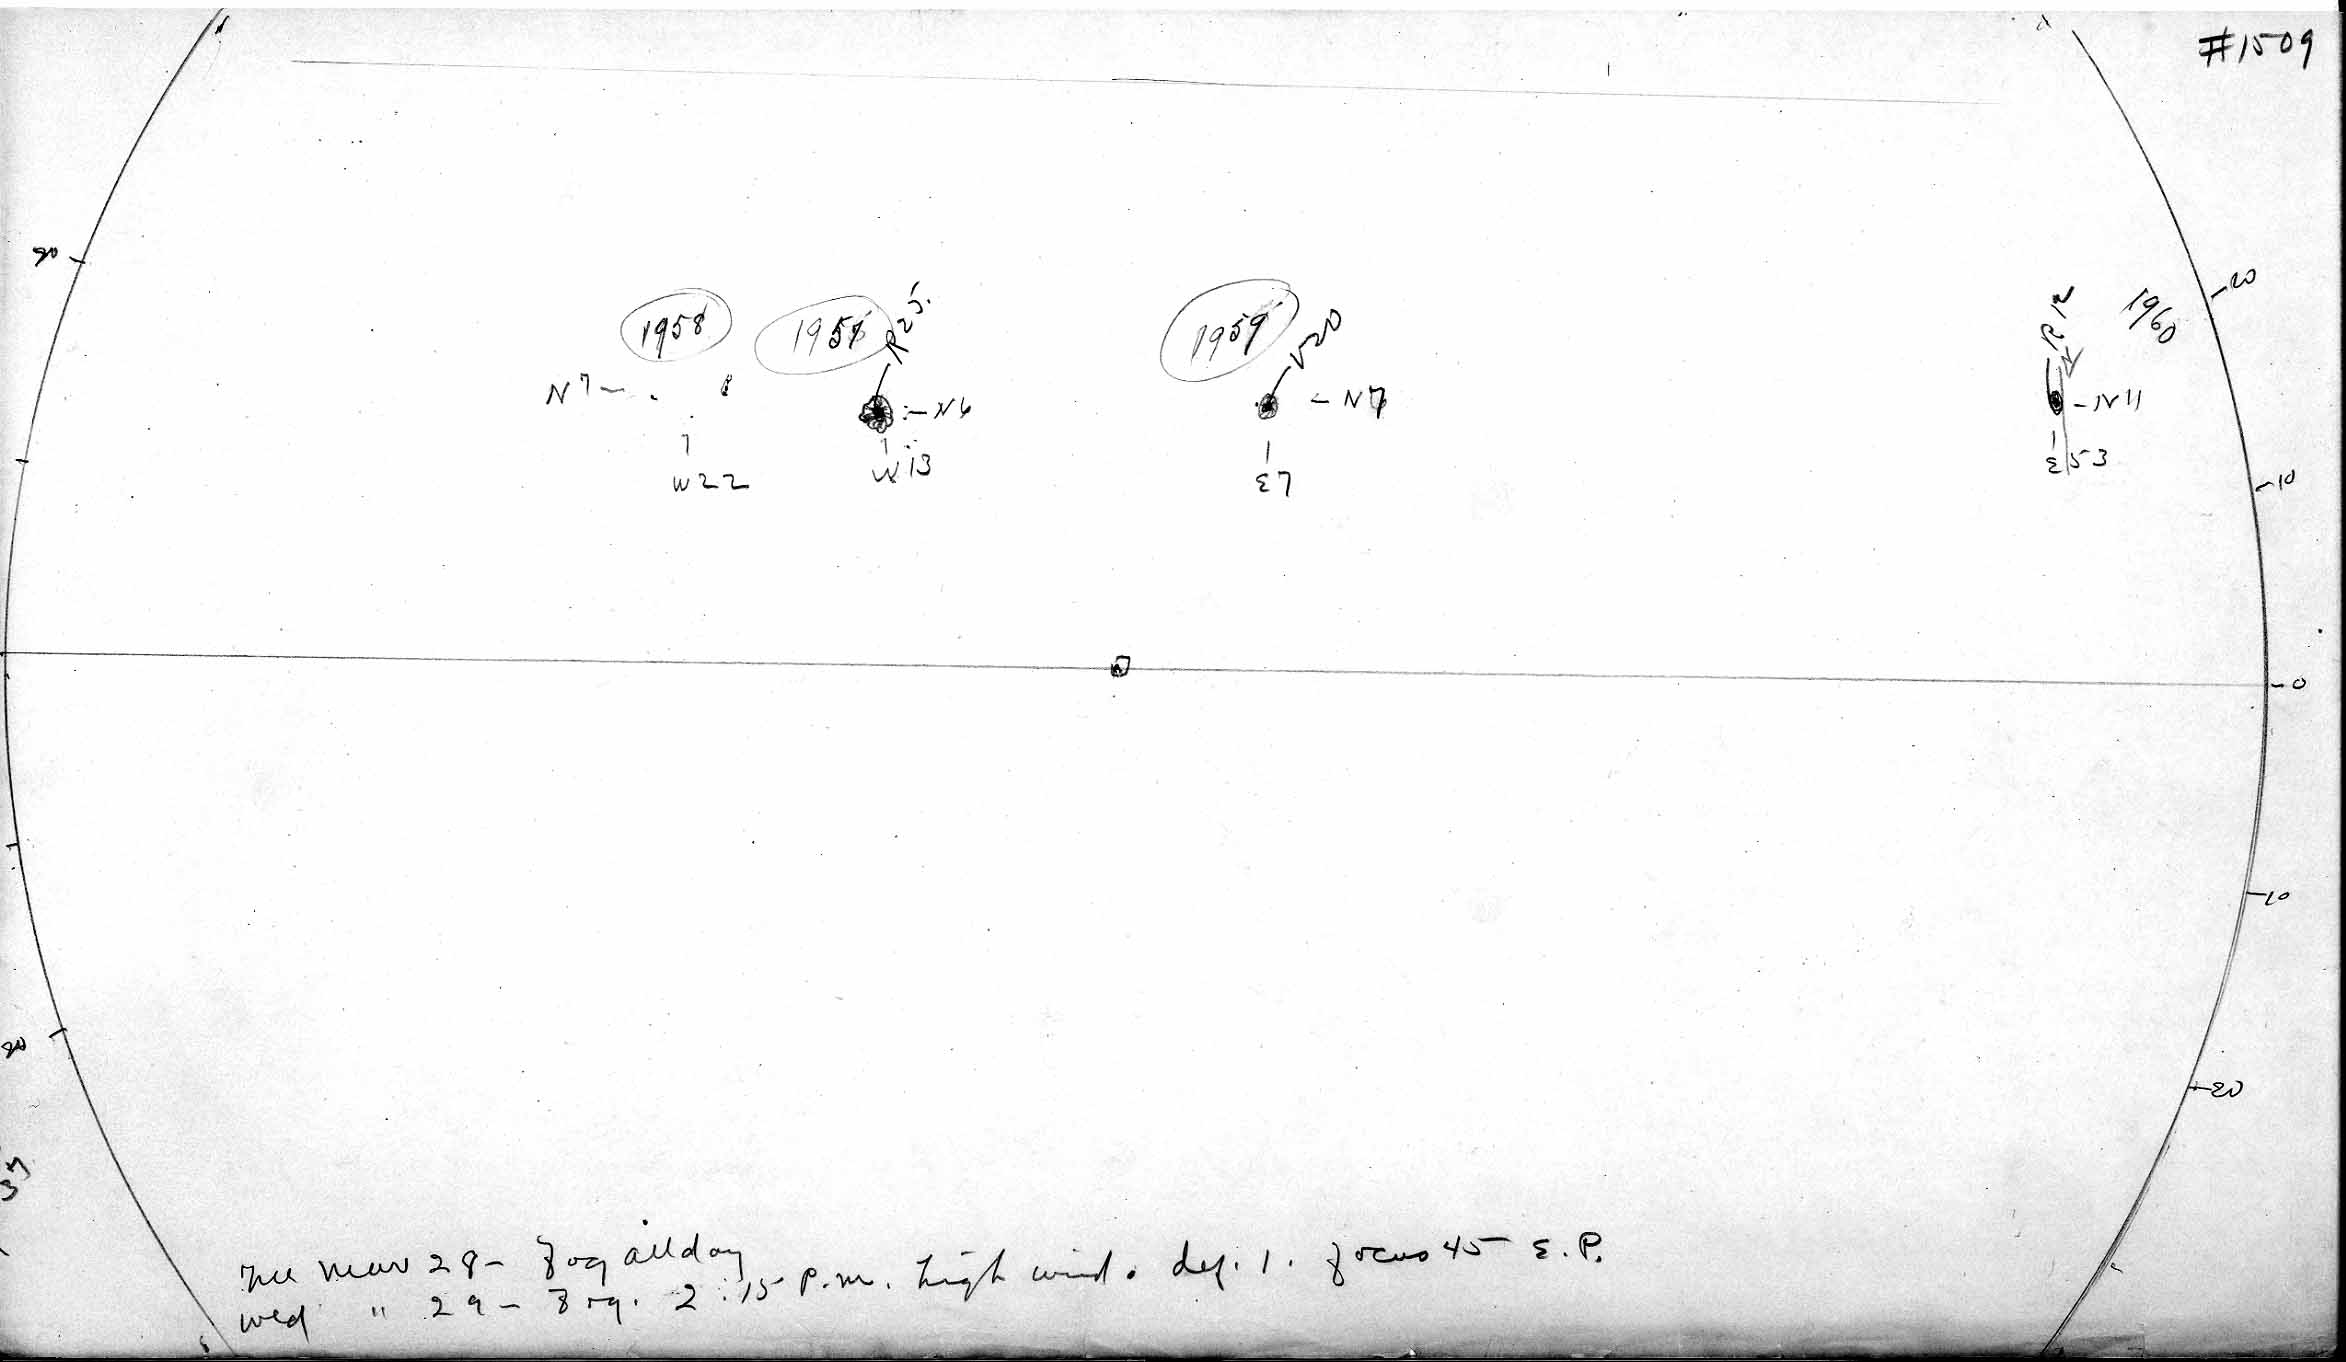 #1509
20
20
1958
1957
R25.
1959
V20
R12
1960
N7
8
-N6
-N7
-N11
W22
W13
E7
E53
-10
-0
-10
20
-20
Tue Mar 28 - Fog all day
Wed " 29 - Fog. 2:15 P.M. high wind. def. 1. focus 45 E.P.